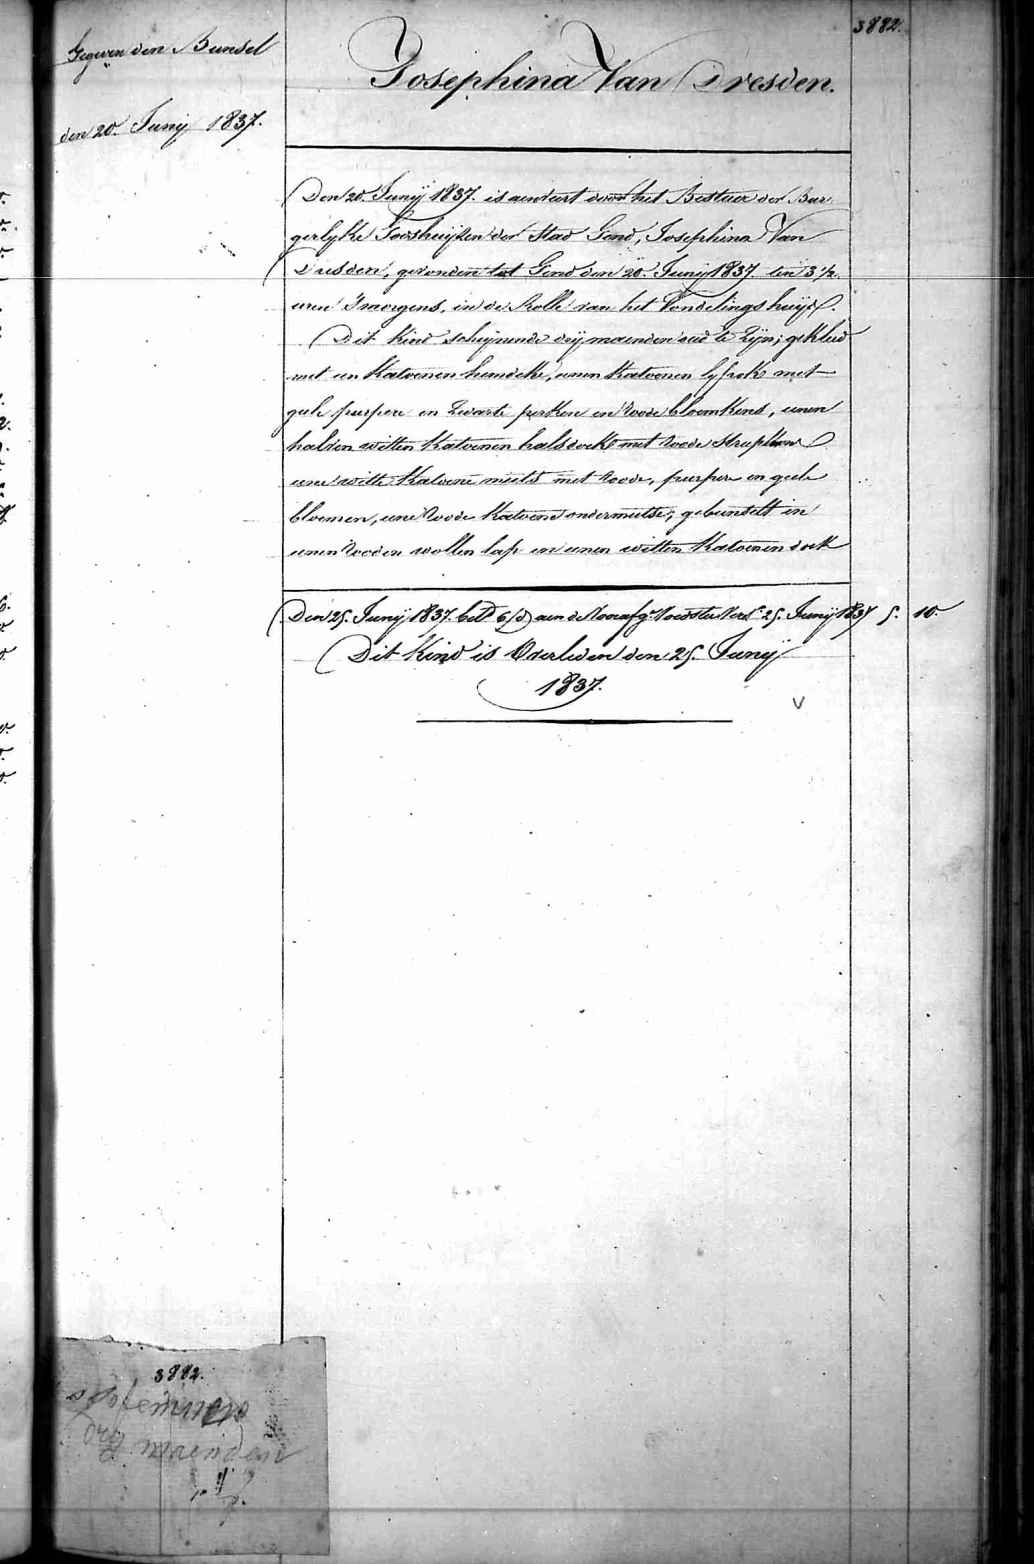 3882.
Gegeven den Bundel
den 20. Junij 1837.
Josephina Van Dresden.
Den 20. Junij 1837. is aenveirt door het Bestuer der Bur
gerlyke Godshuijsen der Stad Gend, Josephina Van
Dresden, gevonden tot Gend den 20. Junij 1837. ten 3 1/2
uren s'morgens, in de Rolle van het Vondelingshuijs.
Dit kind schijnende drij maenden oud te zijn; gekleed
met een katoenen hemdeke, eenen katoenen lyfrok met
geele purpere en zwarte perken en roode bloemkens, eenen
halven witten katoenen halsdoek met roode streepkens
eene witte katoene muts met roode, purpere en geele
bloemen, eene roode katoene ondermutse; gebunselt in
eenen rooden wollen lap en eenen witten katoenen doek
Den 25. Junij 1837. bet. 6/d aen de Voorafg. Voedster Verd. 25. Junij 1837 5. 10.
Dit Kind is Overleden den 25. Junij
1837.
3882.
drij maenden